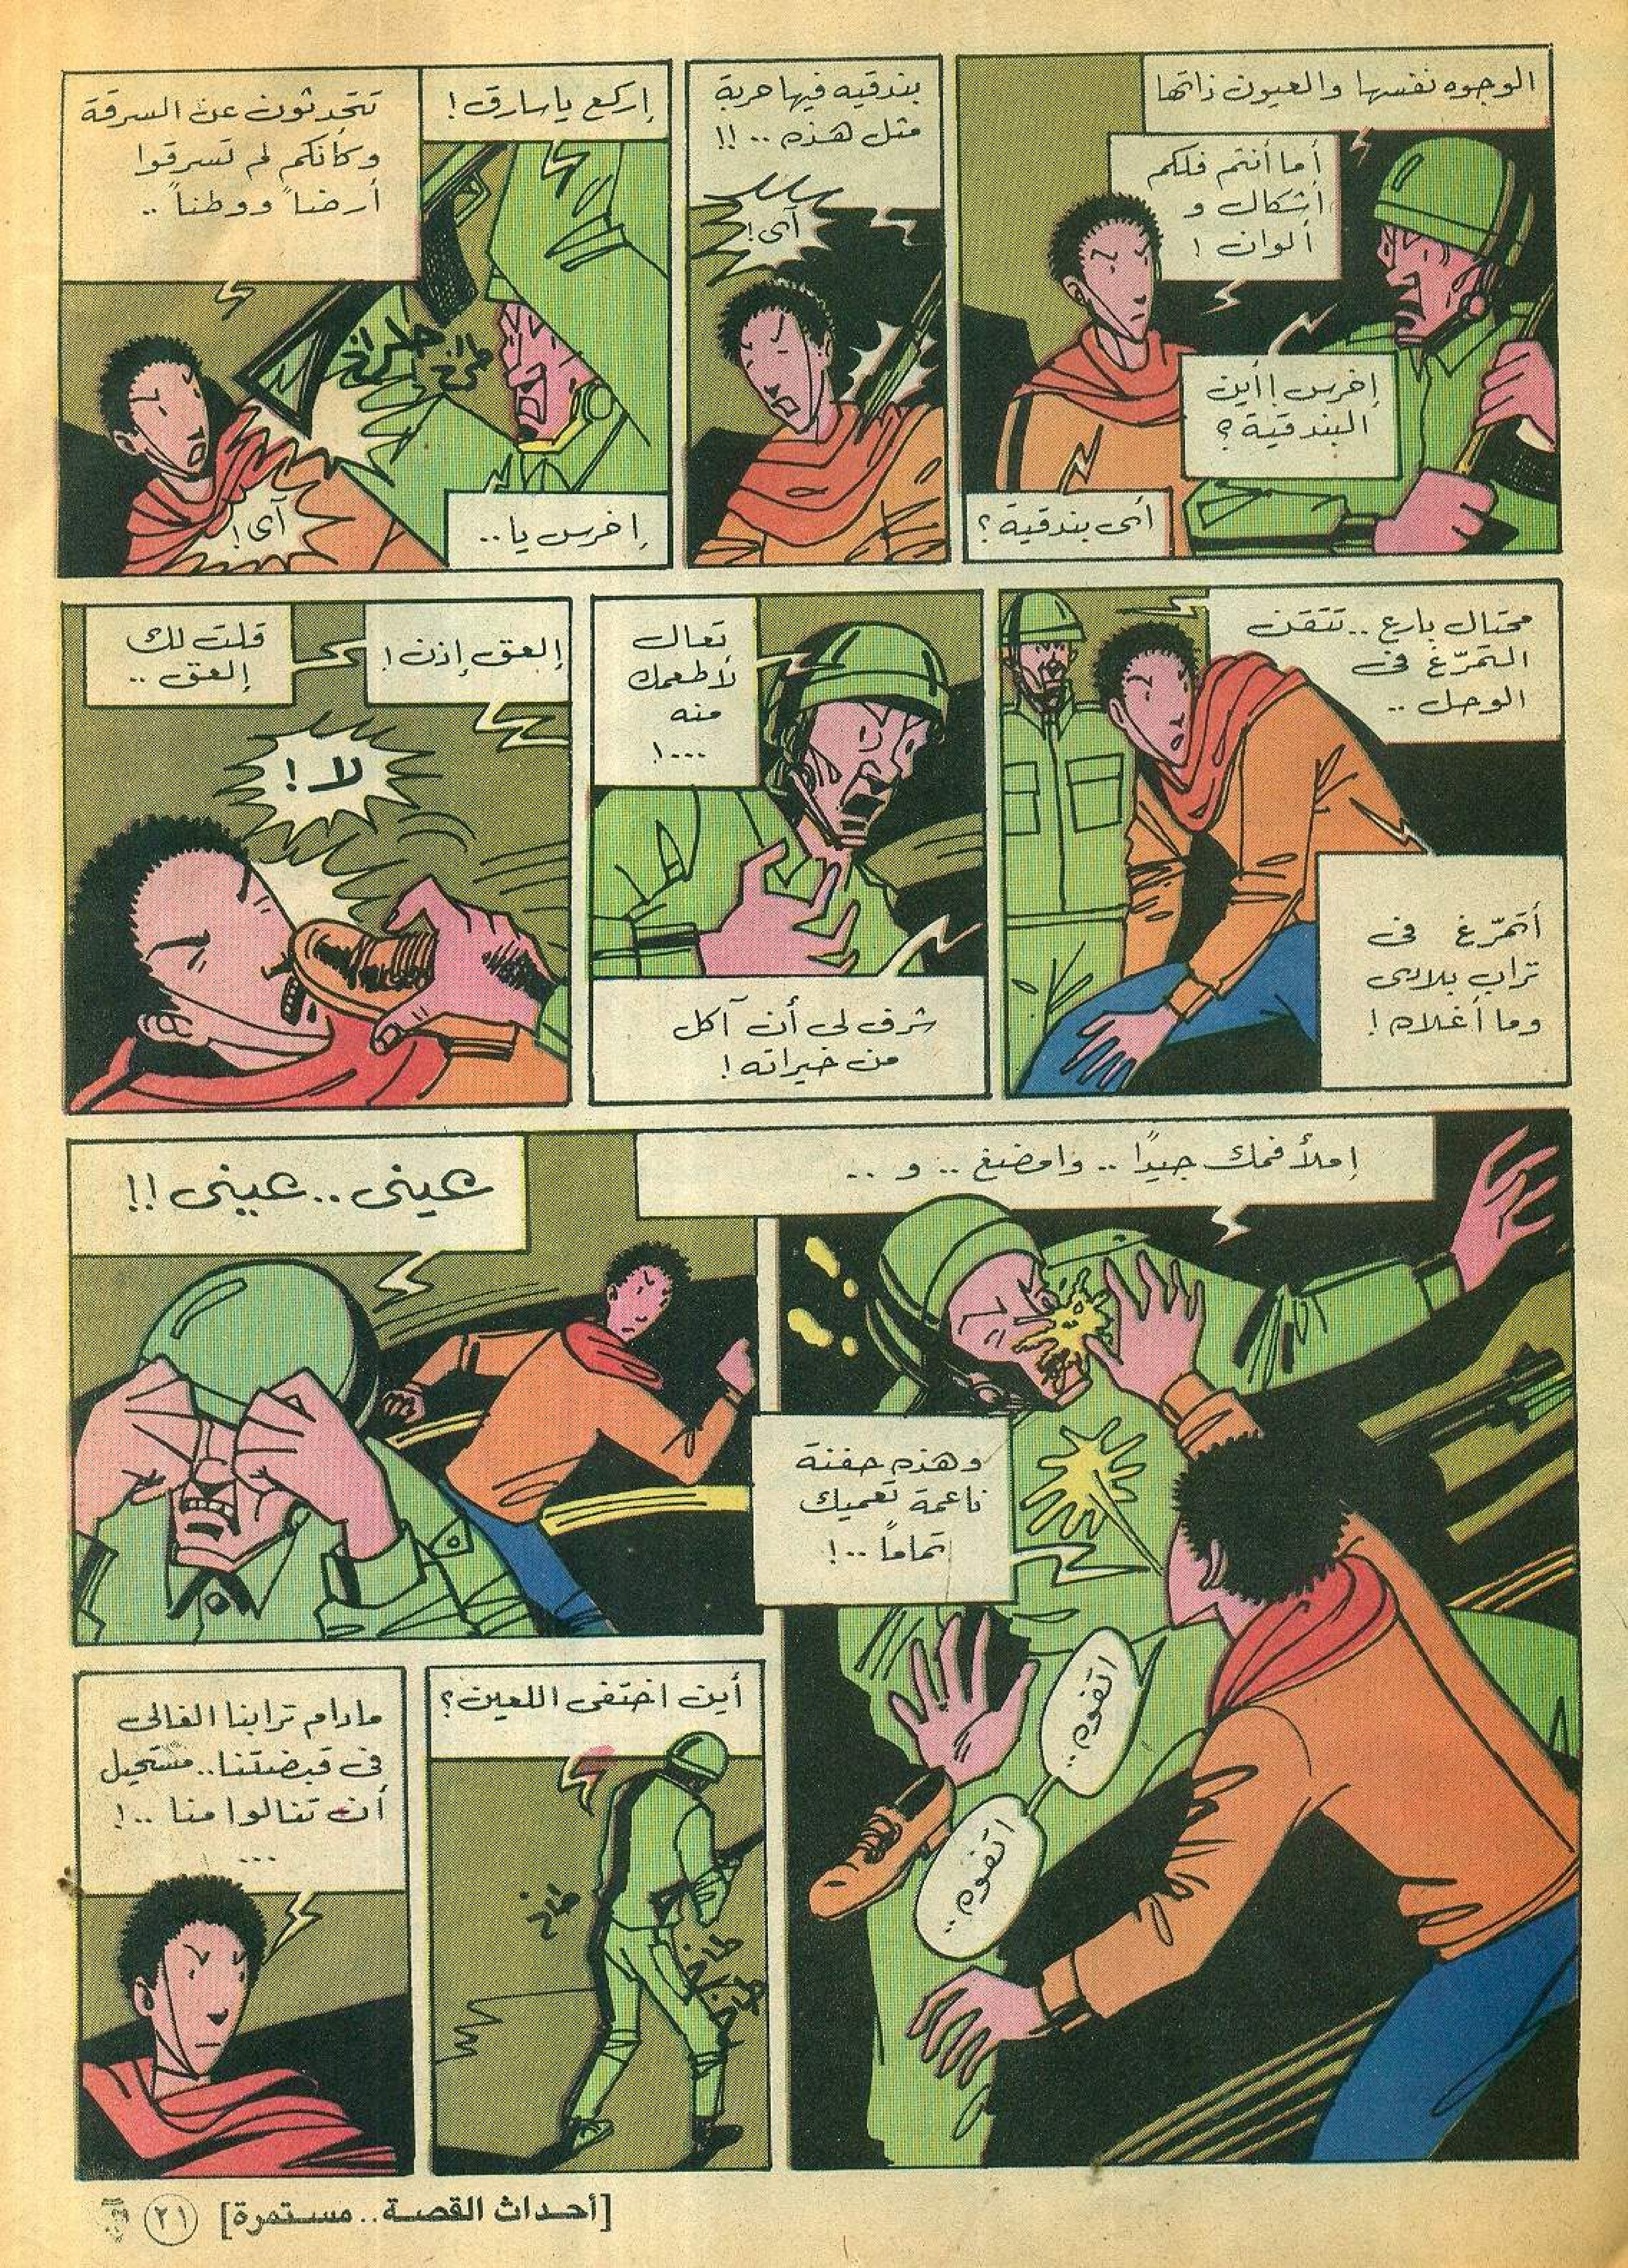 الوجوه نفسها والعيون ذاتها
أما أنتم فلكم
أشكال و
ألوان !
إخرس ! أين
البندقية ؟
أى بندقية ؟
بندقيه فيها حربة
مثل هذه .. !!
آى !
إركع ياسارق !
تتحدثون عن السرقة
وكأنكم لم تسرقوا
أرضنا ووطننا ..
طراخ
طراخ
آى !
إخرس يا ..
محتال بارع .. تتقن
التمرّغ فى
الوحل ..
أتمرّغ فى
تراب بلادى
وما أغلاه !
تعال
لأطعمك
منه
....!
شرف لى أن آكل
من خيراته !
إلعق إذن !
قلت لك
إلعق ..
لا !
إملأ فمك جيدًا .. وامضغ .. و ..
وهذه حفنة
ناعمة تعميك
تماماً ..!
اتفوه ..
اتفوه ..
عينى .. عينى !!
أين اختفى اللعين ؟
طاخ
طاخ
طاخ
مادام ترابنا الغالى
فى قبضتنا .. مستحيل
أن تنالوا منا .. !
...
[أحداث القصة .. مستمرة] ٢١